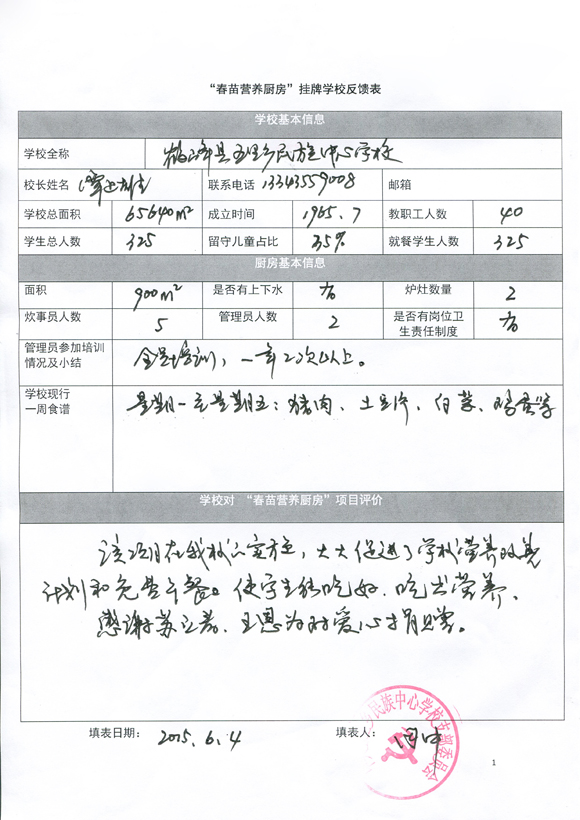 “春苗营养厨房”挂牌学校反馈表
学校基本信息
学校全称 鹤峰县五里乡民族中心学校
校长姓名 联系电话 13343559008 邮箱
学校总面积 65640m² 成立时间 1965.7 教职工人数 40
学生总人数 325 留守儿童占比 35% 就餐学生人数 325
厨房基本信息
面积 900m² 是否有上下水 有 炉灶数量 2
炊事员人数 5 管理员人数 2 是否有岗位卫
生责任制度 有
管理员参加培训
情况及小结 全员培训，一年2次以上。
学校现行
一周食谱 星期一至星期五：猪肉、土豆、白菜、鸡蛋等
学校对 “春苗营养厨房”项目评价
该项目在我校的实施，大大促进了学校营养改善
计划和免费午餐。使学生能吃好、吃出营养、
感谢 爱心 捐赠。
填表日期： 2015.6.4 填表人：
民族中心学校支部委员会
1